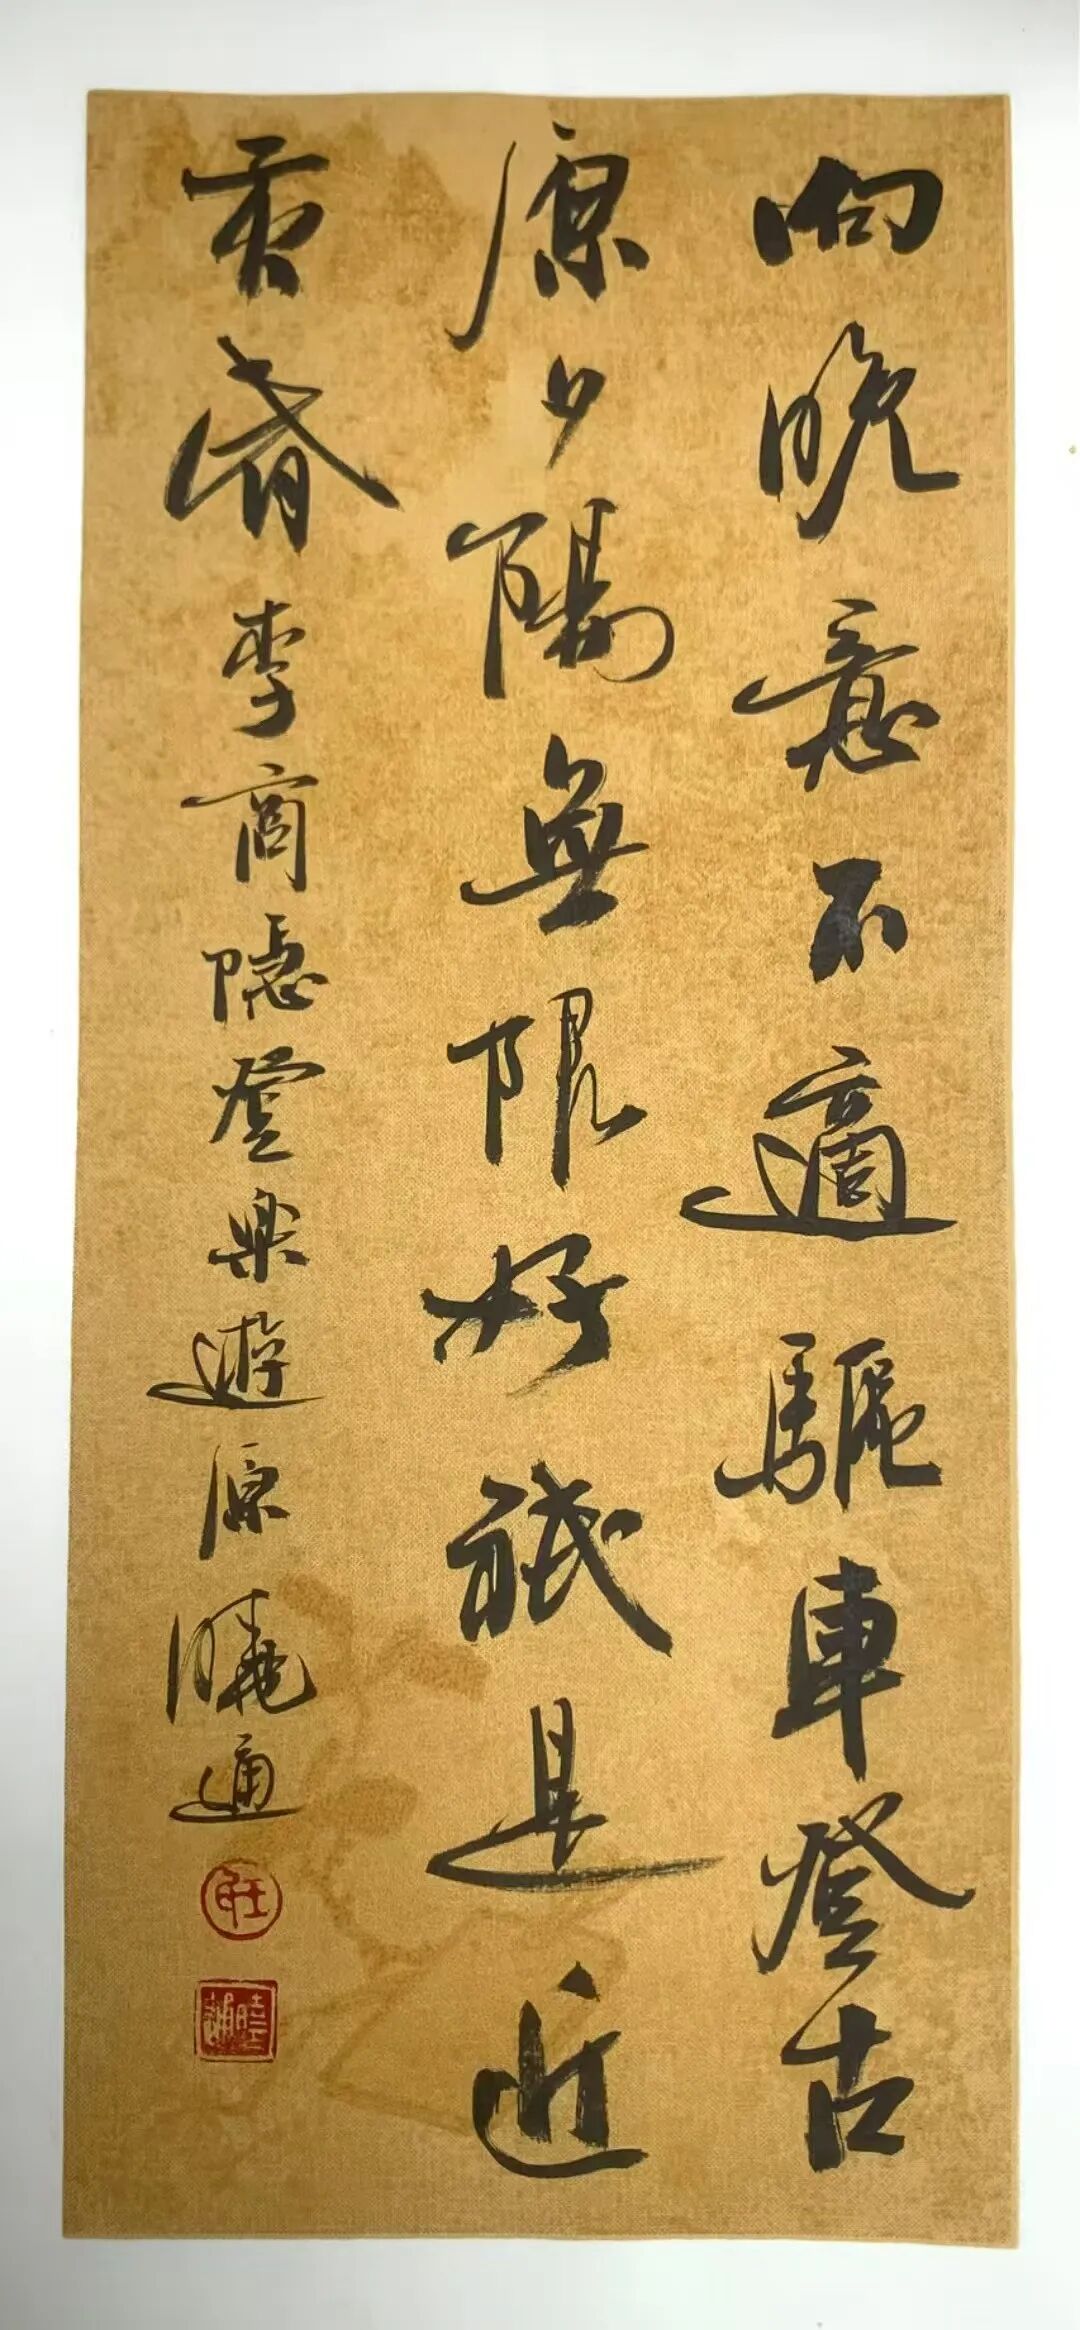 向晚意不適驅車登古
原夕陽無限好祇是近
黃昏李商隱登樂遊原曉通